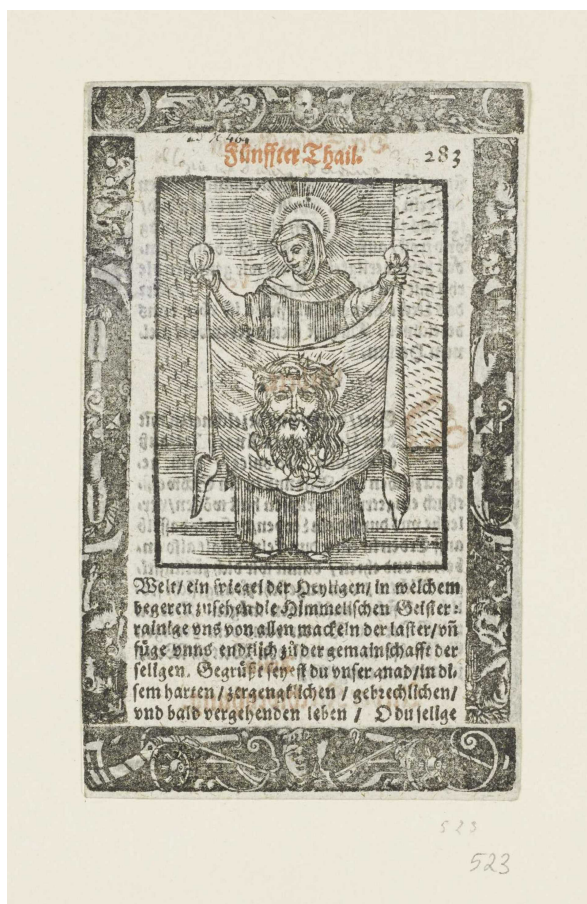 Fünffter Thail.
283
Welt/ ein spiegel der Heyligen/ in welchem
begeren zusehen die Himmelischen Geister:
rainige vns von allen mackeln der laster/ vñ
füge vnns endtlich zů der gemainschafft der
seligen. Gegrüßt seyest du vnser gnad/ in di-
sem harten / zergengklichen / gebrechlichen/
vnd bald vergehenden leben / O du selige
523
523